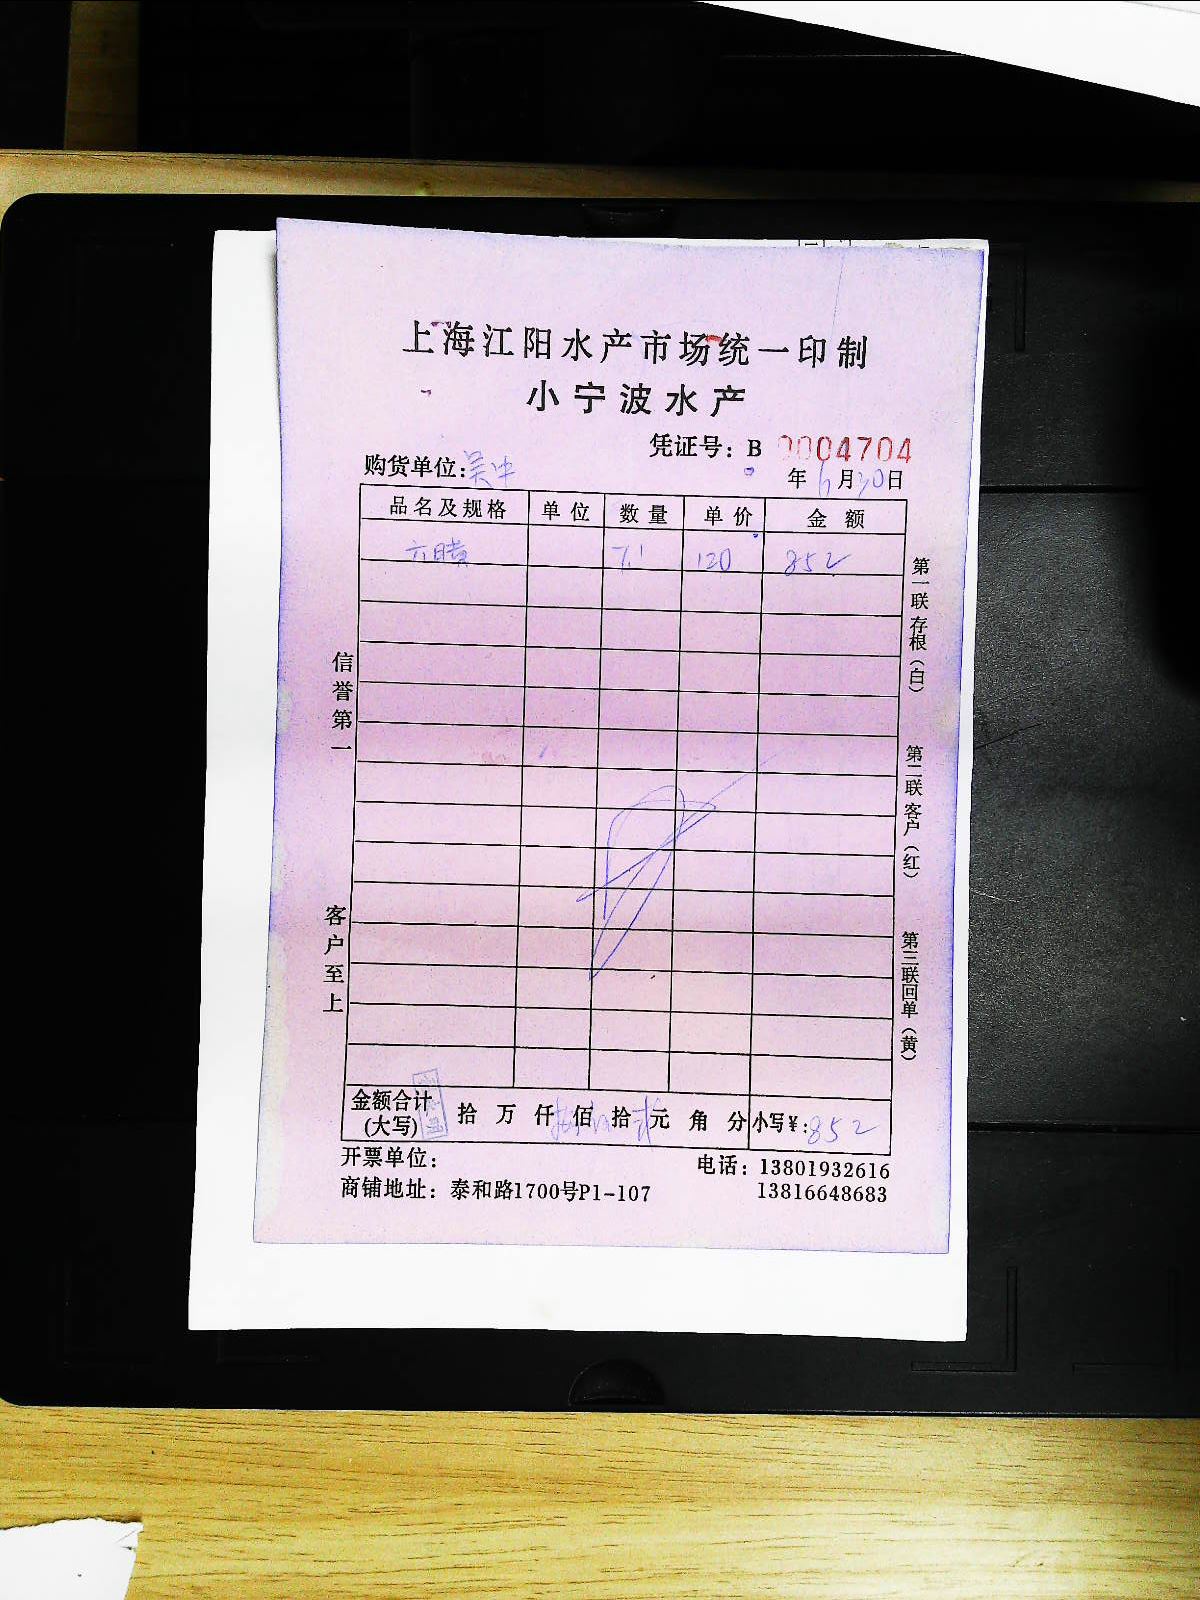 上海江阳水产市场统一印制
小宁波水产
凭证号：B 0004704
购货单位：吴中 年 6 月 30 日
品名及规格 单位 数量 单价 金额
7.1 120 852
信誉第一
客户至上
第一联存根（白）
第二联客户（红）
第三联回单（黄）
金额合计(大写) 拾 万 仟 佰 拾 元 角 分 小写¥：852
开票单位： 电话：13801932616
商铺地址：泰和路1700号P1-107 13816648683